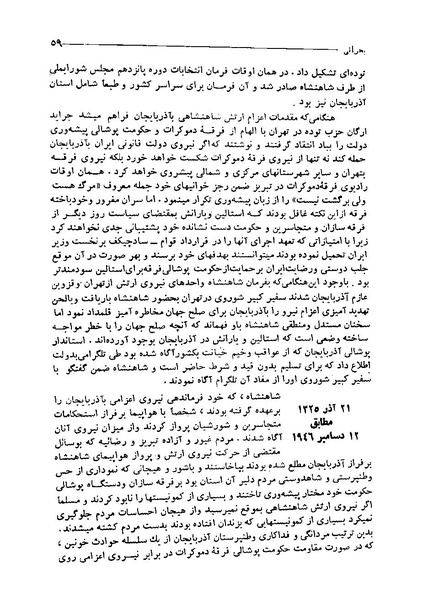 بحرانی ۵۹
توده‌ای تشکیل داد . در همان اوقات فرمان انتخابات دوره پانزدهم مجلس شورایملی
از طرف شاهنشاه صادر شد و آن فرمان برای سراسر کشور و طبعاً شامل استان
آذربایجان نیز بود .
هنگامی‌که مقدمات اعزام ارتش شاهنشاهی بآذربایجان فراهم میشد جراید
ارگان حزب توده در تهران با الهام از فرقهٔ دموکرات و حکومت پوشالی پیشه‌وری
دولت را بباد انتقاد گرفتند و نوشتند که اگر نیروی دولت قانونی ایران بآذربایجان
حمله کند نه تنها از نیروی فرقهٔ دموکرات شکست خواهد خورد بلکه نیروی فرقه
بتهران و سایر شهرستانهای مرکزی و شمالی پیشروی خواهد کرد . همان اوقات
رادیوی فرقهٔ دموکرات در تبریز ضمن رجز خوانیهای خود جمله معروف «مرگ هست
ولی برگشت نیست» را از زبان پیشه‌وری تکرار مینمود. اما سران مغرور وخودباخته
فرقه ازاین نکته غافل بودند که استالین ویارانش بمقتضای سیاست روز دیگر از
فرقه سازان و متجاسرین و حکومت دست نشانده خود پشتیبانی جدی نخواهند کرد
زیرا با امتیازاتی که تعهد اجرای آنها را در قرارداد قوام ــ سادچیکف برنخست وزیر
ایران تحمیل نموده بودند میتوانستند بهدفهای خود برسند و بهر صورت در آن موقع
جلب دوستی ورضایت‌ایران برحمایت‌ازحکومت پوشالی‌فرقه‌برای استالین سودمندتر
بود . باوجود این‌هنگامی‌که‌بفرمان شاهنشاه واحدهای نیروی ارتش ازتهران‌وقزوین
عازم آذربایجان شدند سفیر کبیر شوروی درتهران بحضور شاهنشاه باریافت وبالحن
تهدید آمیزی اعزام نیرو را بآذربایجان برای صلح جهان مخاطره آمیز قلمداد نمود اما
سخنان مستدل ومنطقی شاهنشاه باو فهماند که آنچه صلح جهان را با خطر مواجهه
ساخته وضعی است که استالین و یارانش در آذربایجان بوجود آورده‌اند . استاندار
پوشالی آذربایجان که از عواقب وخیم خیانت بکشورآگاه شده بود طی تلگرامی‌بدولت
اطلاع داد که برای تسلیم بدون قید و شرط حاضر است و شاهنشاه ضمن گفتگو با
سفیر کبیر شوروی اورا از مفاد آن تلگرام آگاه نمودند .
شاهنشاه ، که خود فرماندهی نیروی اعزامی بآذربایجان را
۲۱ آذر ۱۳۲۵
برعهده گرفته بودند ، شخصاً با هواپیما برفراز استحکامات
مطابق
متجاسرین و شورشیان پرواز کردند واز میزان نیروی آنان
۱۲ دسامبر ۱۹۴۶
آگاه شدند . مردم غیور و آزاده تبریز و رضائیه که بوسائل
مقتضی از حرکت نیروی ارتش و پرواز هواپیمای شاهنشاه
برفراز آذربایجان مطلع شده بودند بپاخاستند و باشور و هیجانی که نموداری از حس
وطنپرستی و شاهدوستی مردم دلیر آن استان بود برفرقه سازان ودستگاه پوشالی
حکومت خود مختار پیشه‌وری تاختند و بسیاری از کمونیستها را نابود کردند و مسلماً
اگر نیروی ارتش شاهنشاهی بموقع نمیرسید واز هیجان احساسات مردم جلوگیری
نمیکرد بسیاری از کمونیستهایی که بزندان افتاده بودند بدست مردم کشته میشدند.
بدین ترتیب مردانگی و فداکاری وطنپرستان آذربایجان از یک سلسله حوادث خونین ،
که در صورت مقاومت حکومت پوشالی فرقهٔ دموکرات در برابر نیروی اعزامی روی